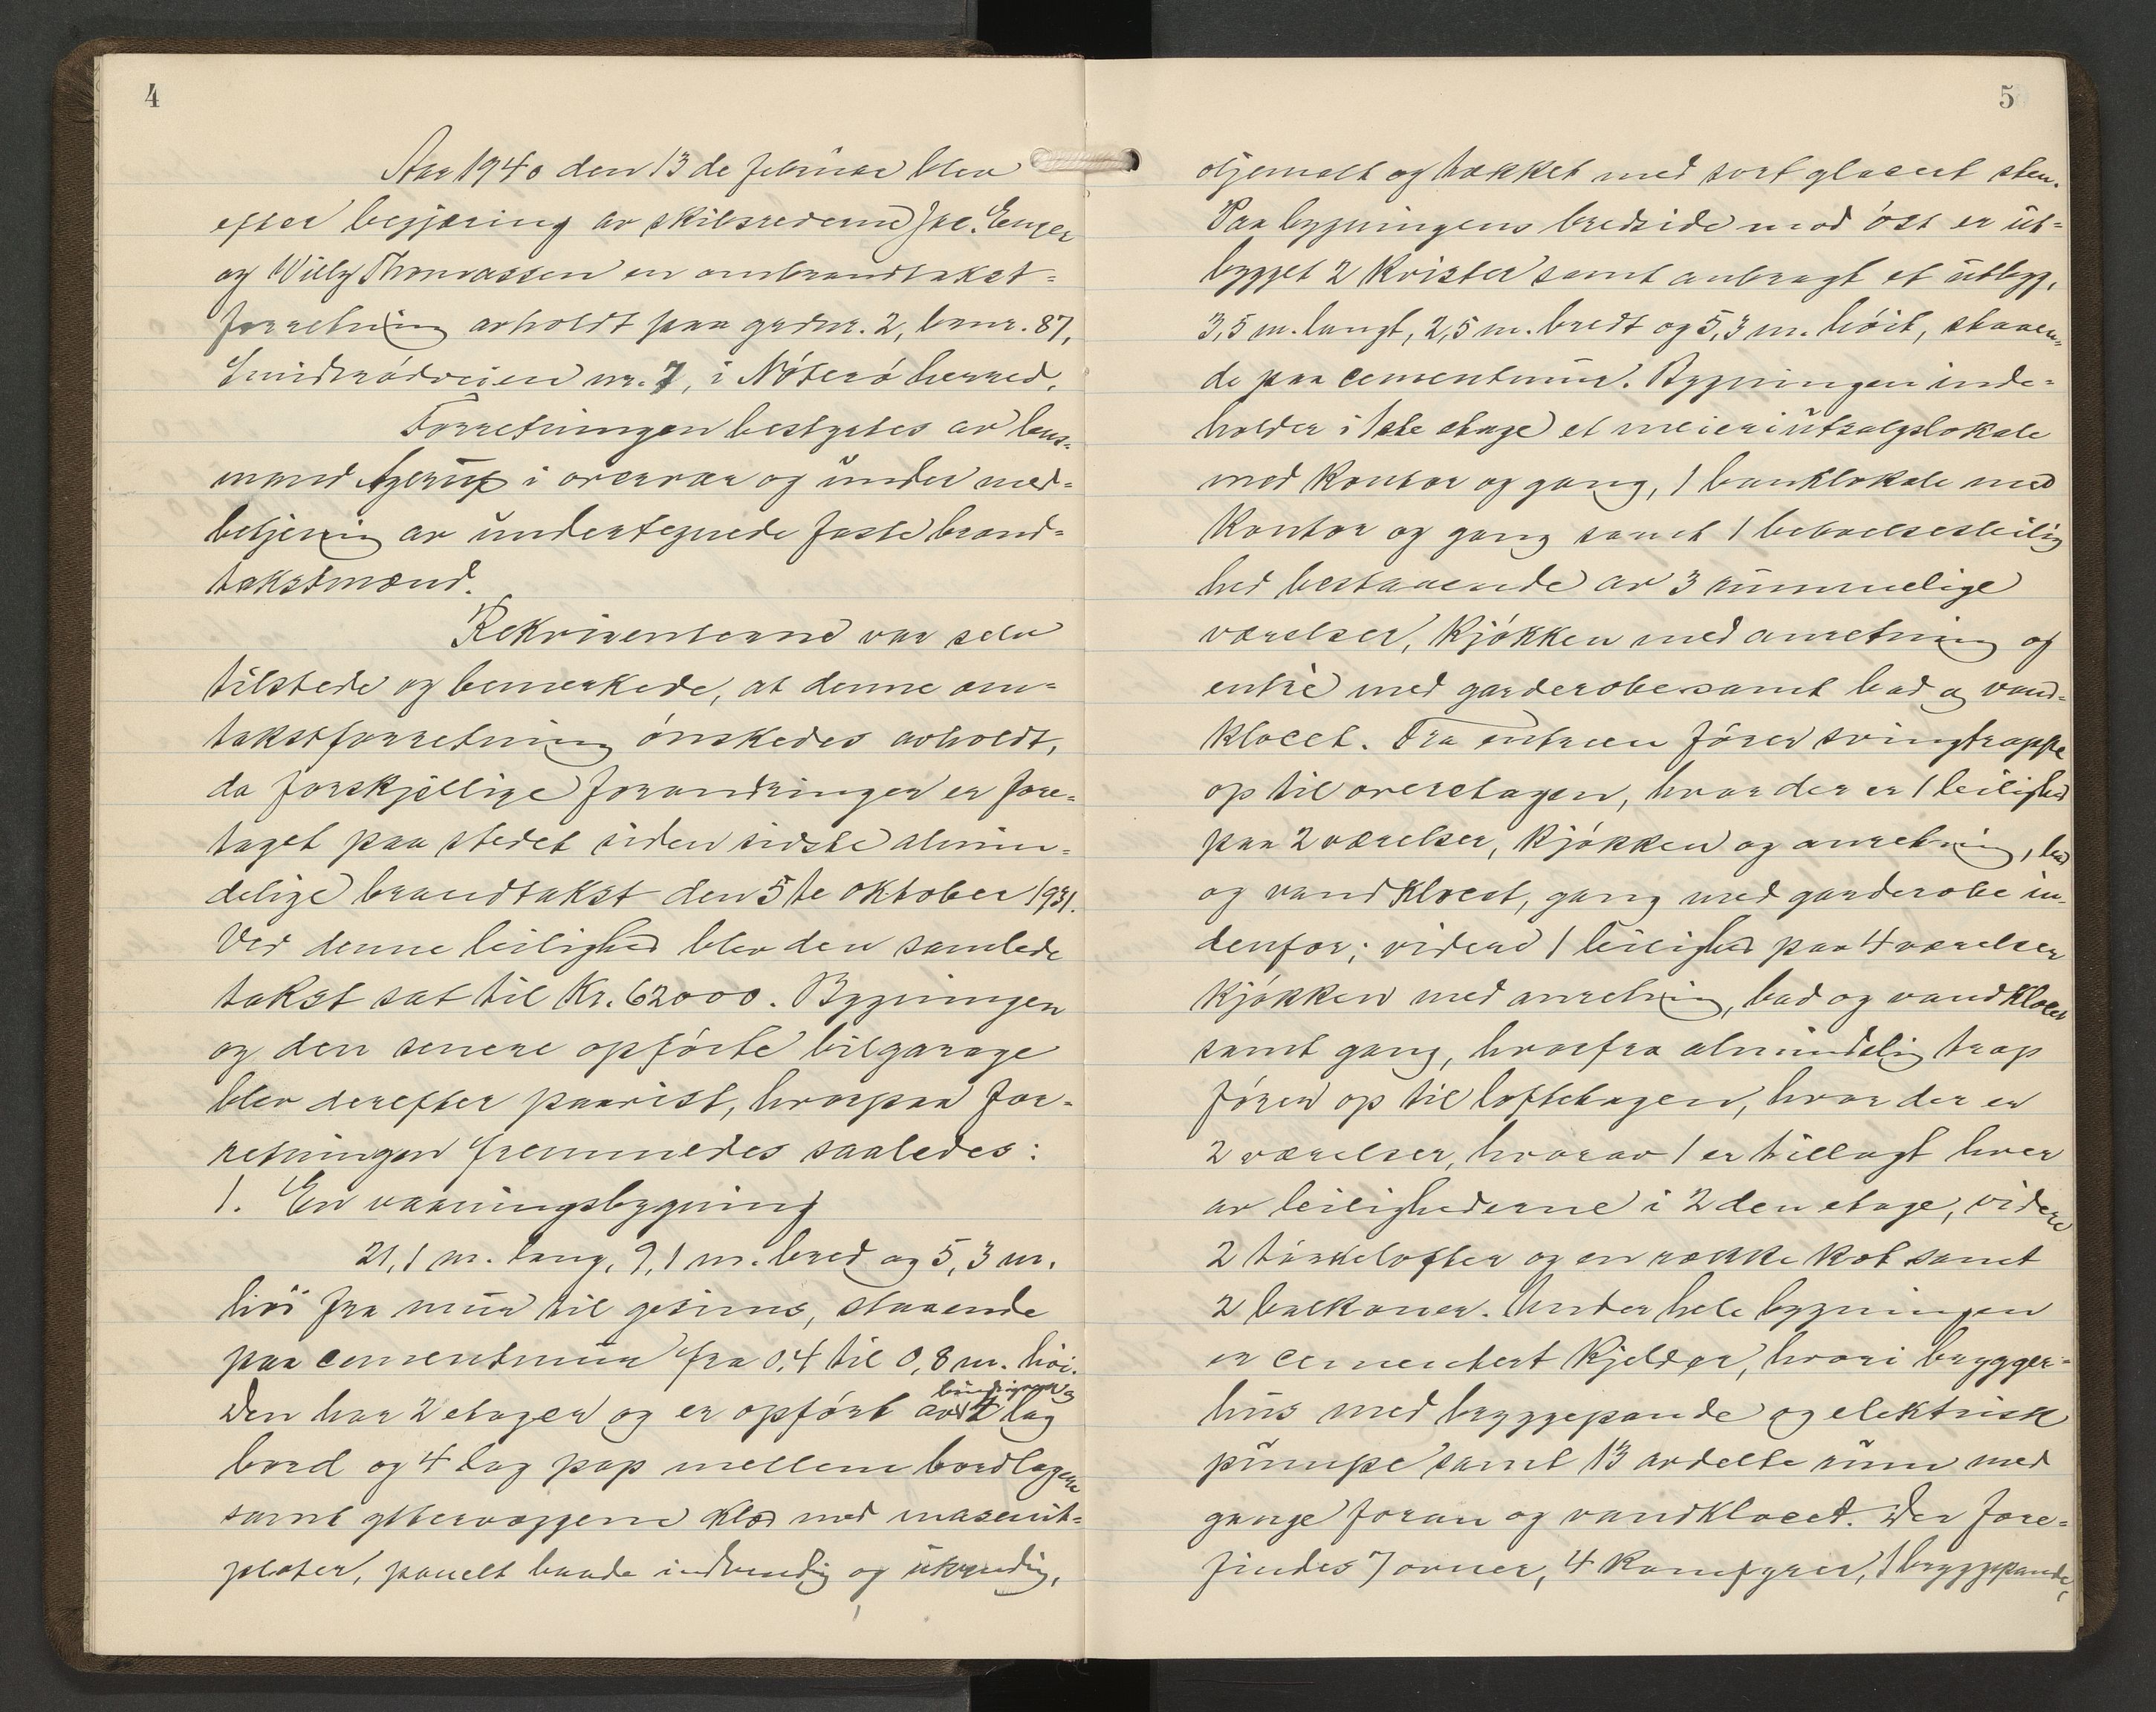 4
Aar 1940 den 13de februar blev
efter begjæring av skibsrederne Joc. Enger
og Willy Thomassen en ombrandtakst-
forretning avholdt paa grdnr. 2, brnr. 87,
Smidsrödveien nr. 7, i Nöterö herred.
Forretningen bestyrtes av lens-
mand Agerup i overvær og under med-
betjening av undertegnede faste brand-
takstmænd.
Rekvirenterne var selv
tilstede og bemerkede, at denne om-
takstforretning önskedes avholdt,
da forskjellige forandringer er fore-
taget paa stedet siden sidste almin-
delige brandtakst den 5te oktober 1931.
Ved denne leilighed blev den samlede
takst sat til Kr. 62000. Bygningen
og den senere opförte bilgarage
blev derefter paavist, hvorpaa for-
retningen fremmedes saaledes:
1. En vaaningsbygning
21,1 m. lang, 9,1 m. bred og 5,3 m.
höi fra mur til gesims, staaende
paa cementmur fra 0,4 til 0,8 m. höi.
Den har 2 etager og er opfört av bindingsverk og 4 lag
bord og 4 lag pap mellem bordlagene
samt ytervæggene klæd med masonit-
plater, panelt baade indvendig og utvendig,
5
oljemalt og tækket med sort glasert sten.
Paa bygningens bredside mod öst er ut-
bygget 2 kvister samt anbragt et utbygg,
3,5 m. langt, 2,5 m. bredt og 5,3 m. höit, staaen-
de paa cementmur. Bygningen inde-
holder i 1ste etage et meieriutsalgslokale
med kontor og gang, 1 banklokale med
kontor og gang samt 1 beboelsesleilig
hed bestaaende av 3 rummelige
værelser, kjökken med anretning og
entré med garderobe samt bad og vand-
klocet. Fra entreen förer svingtrappe
op til overetagen, hvor der er 1 leilighed
paa 2 værelser, kjökken og anretning, bad
og vandklocet, gang med garderobe in-
denfor; videre 1 leilighed paa 4 værelser
kjökken med anretning, bad og vandklocet
samt gang, hvorfra almindelig trap
förer op til loftetagen, hvor der er
2 værelser, hvorav 1 er tillagt hver
av leilighederne i 2den etage, videre
2 törkelofter og en række kot samt
2 balkoner. Under hele bygningen
er cementert kjelder, hvori brygger-
hus med bryggepande og elektrisk
pumpe samt 13 avdelte rum med
gange foran og vandklocet. Der fore-
findes 7 ovner, 4 komfyrer, 1 bryggepande,